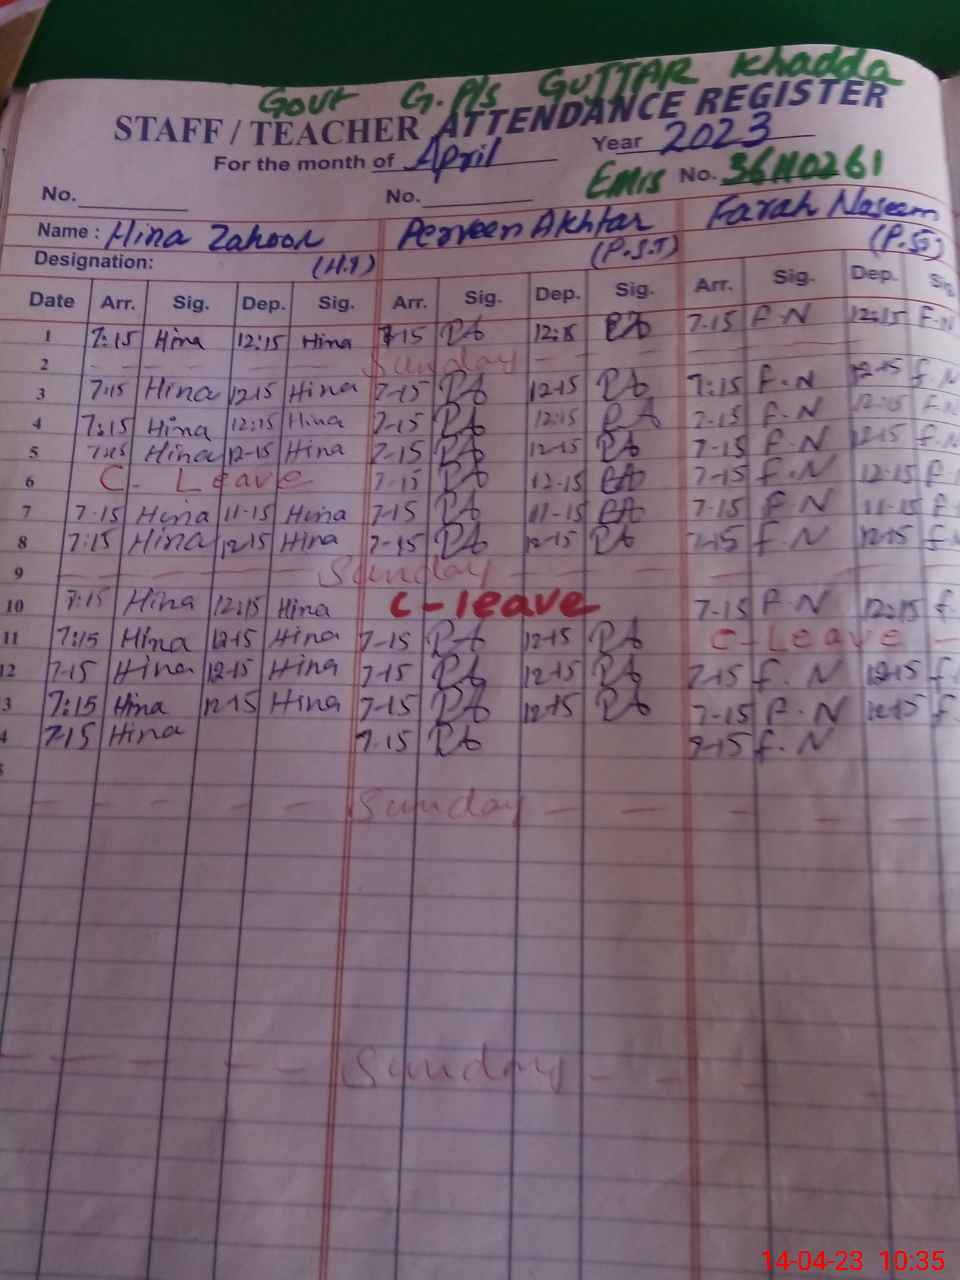 Govt G.P/s GUTTAR Khadda
STAFF / TEACHER ATTENDANCE REGISTER
For the month of April Year 2023
No. No. Emis No. 36110261
Name : Hina Zahoor Perveen Akhtar Farah Naseem
Designation: (H.T) (P.S.T) (P.ST)
Date Arr. Sig. Dep. Sig. Arr. Sig. Dep. Sig. Arr. Sig. Dep. Sig.
1 7:15 Hina 12:15 Hina 7-15 PA 12:15 PA 7-15 F.N 12:15 F.N
2 Sunday
3 7:15 Hina 12-15 Hina 7-15 PA 12-15 PA 7:15 F.N 12-15 f.N
4 7:15 Hina 12:15 Hina 7-15 PA 12:15 PA 7-15 F.N 12:15 F.N
5 7:15 Hina 12-15 Hina 7-15 PA 12-15 PA 7-15 F.N 12-15 f.N
6 C- Leave 7-15 PA 12-15 PA 7-15 f.N 12-15 f.
7 7-15 Hina 11-15 Hina 7-15 PA 11-15 PA 7-15 F.N 11-15 F
8 7:15 Hina 12-15 Hina 7-15 PA 12-15 PA 7-15 f.N 12-15 f.
9 Sunday
10 7:15 Hina 12:15 Hina C-leave 7-15 F.N 12:15 f.
11 7:15 Hina 12-15 Hina 7-15 PA 12-15 PA C-Leave
12 7-15 Hina 12-15 Hina 7-15 PA 12-15 PA 7-15 f.N 12-15 f.
3 7:15 Hina 12-15 Hina 7-15 PA 12-15 PA 7-15 F.N 12-15 f.
4 7-15 Hina 7-15 PA 7-15 f.N
Sunday
Sunday
14-04-23 10:35